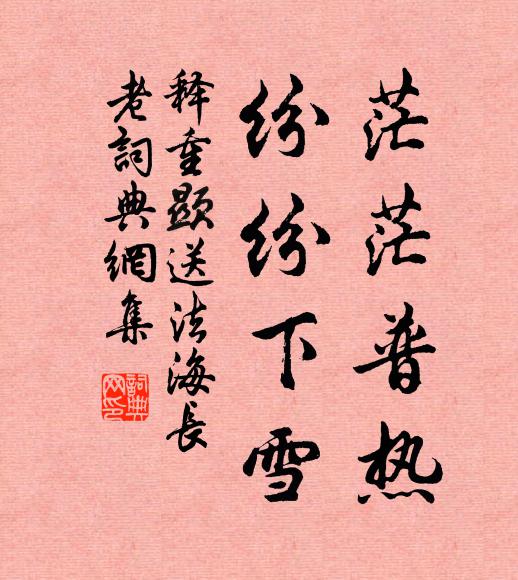 茫茫普热
纷纷下雪
释重显送法海长
老詞典網集
詞典
网印